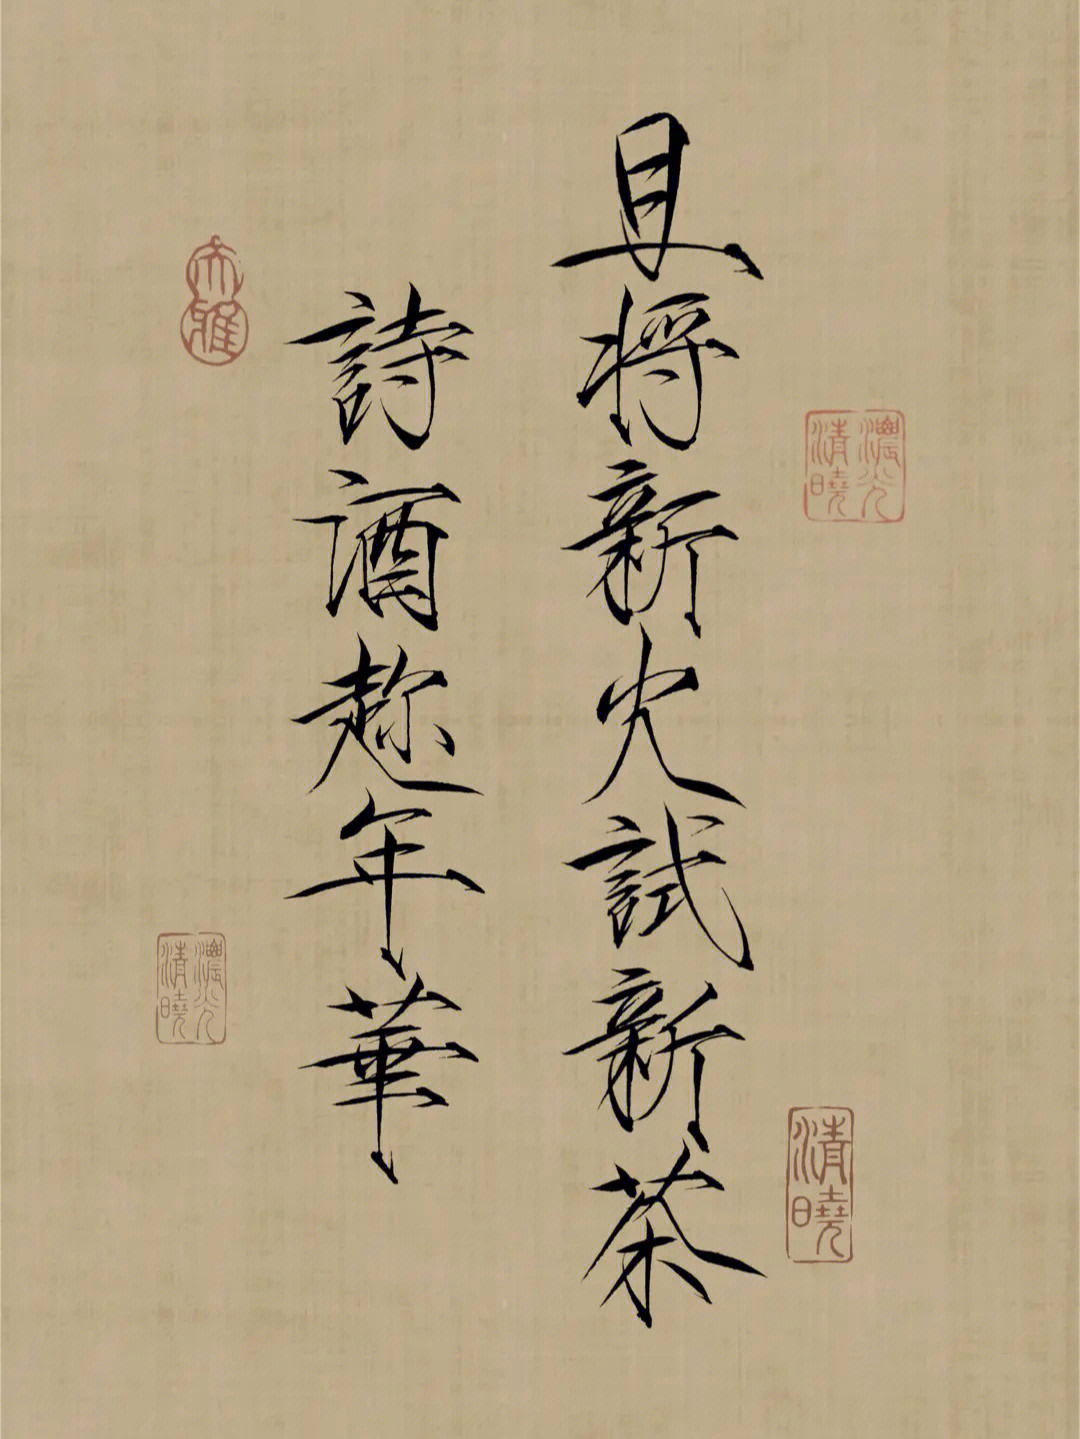 且将新火試新茶
詩酒趁年華
大雅
濃光清曉
濃光清曉
清曉